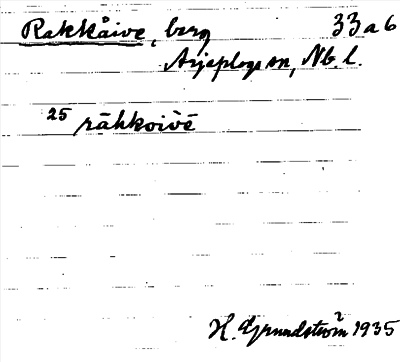 Rakkåive, berg 33a6
Arjeplogs sn, Nb. l.
25 rākkoi̯vē
H. Grundström 1935